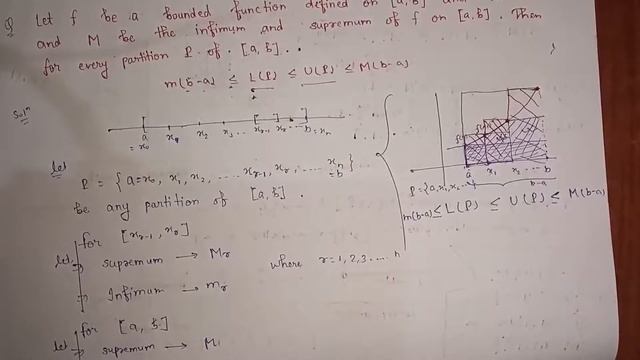 Q Let f be a bounded function defined on [a,b] and
and M be the infimum and supremum of f on [a,b]. Then
for every partition P of [a,b].
m(b-a) ≤ L(P) ≤ U(P) ≤ M(b-a)
Solⁿ
a = x₀ x₁ x₂ x₃ ... xᵣ₋₁ xᵣ ... b = xₙ
let
P = {a=x₀, x₁, x₂, ..... xᵣ₋₁, xᵣ, ..... xₙ = b}
be any partition of [a,b].
for [xᵣ₋₁, xᵣ]
let, supremum → Mᵣ
Infimum → mᵣ
where r=1,2,3.... n
for [a, b]
let supremum → M
a x₁ x₂ ... b
b-a
P = {a, x₁, x₂...
m(b-a) ≤ L(P) ≤ U(P) ≤ M(b-a)